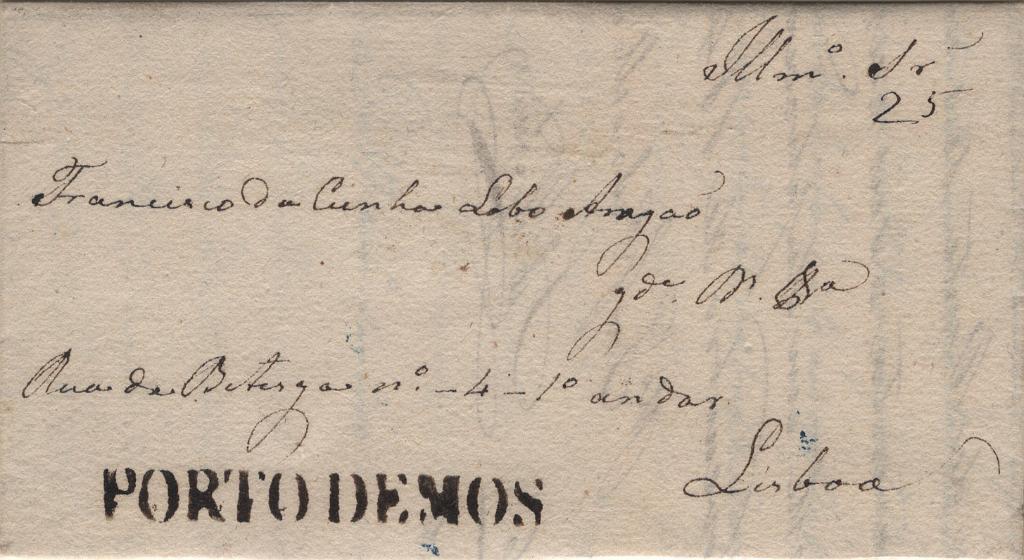 Illmo. Sr
25
Francisco da Cunha Lobo Aragão
gde.
Rua da Bitesga nº - 4 - 1º andar
Lisboa
PORTO DE MOS